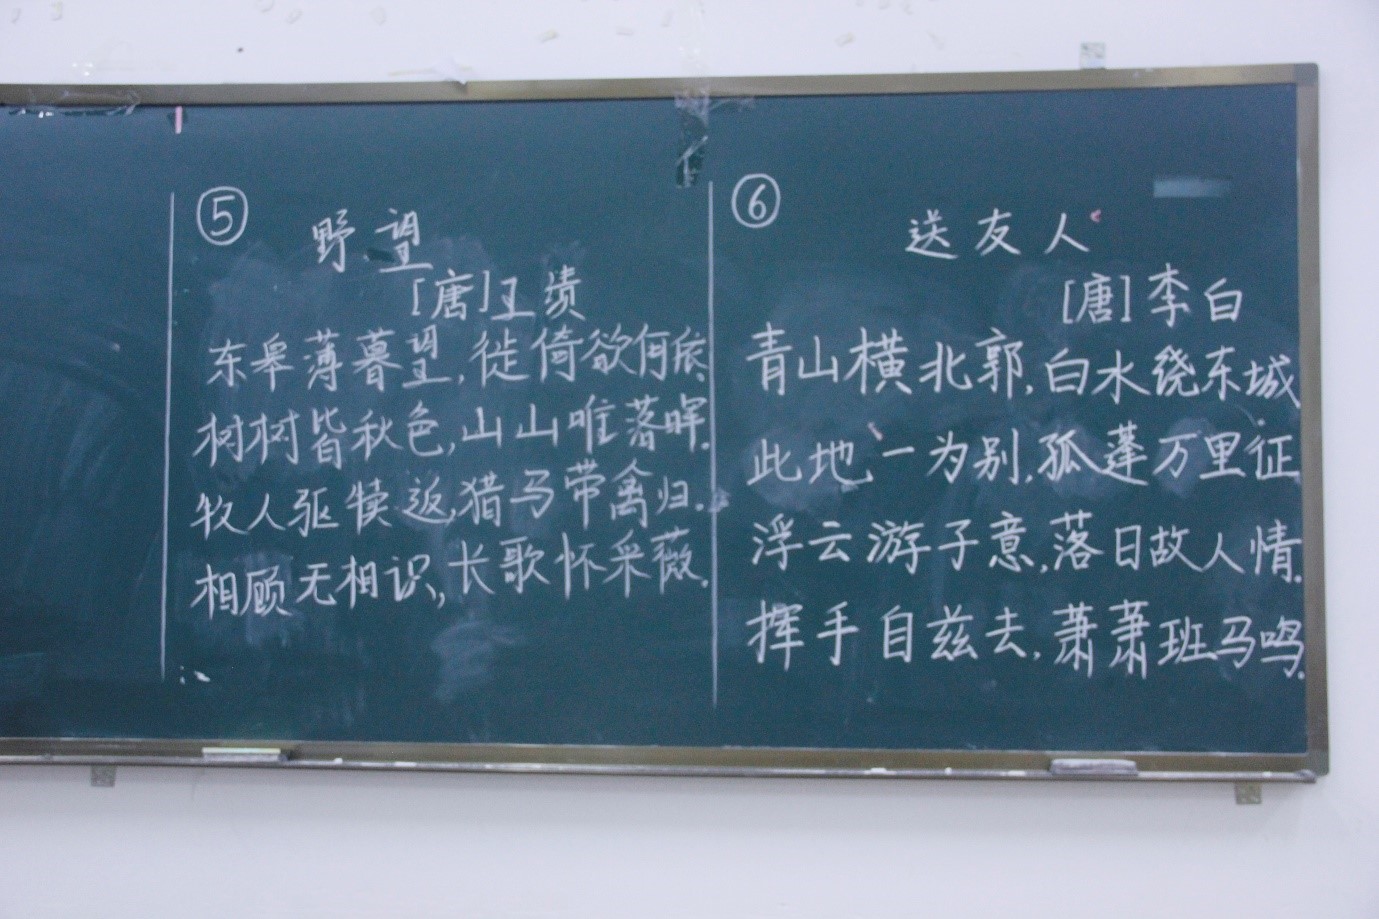 ⑤
野望
[唐]王绩
东皋薄暮望,徙倚欲何依.
树树皆秋色,山山唯落晖.
牧人驱犊返,猎马带禽归.
相顾无相识,长歌怀采薇.
⑥
送友人
[唐]李白
青山横北郭,白水绕东城.
此地一为别,孤蓬万里征.
浮云游子意,落日故人情.
挥手自兹去,萧萧班马鸣.